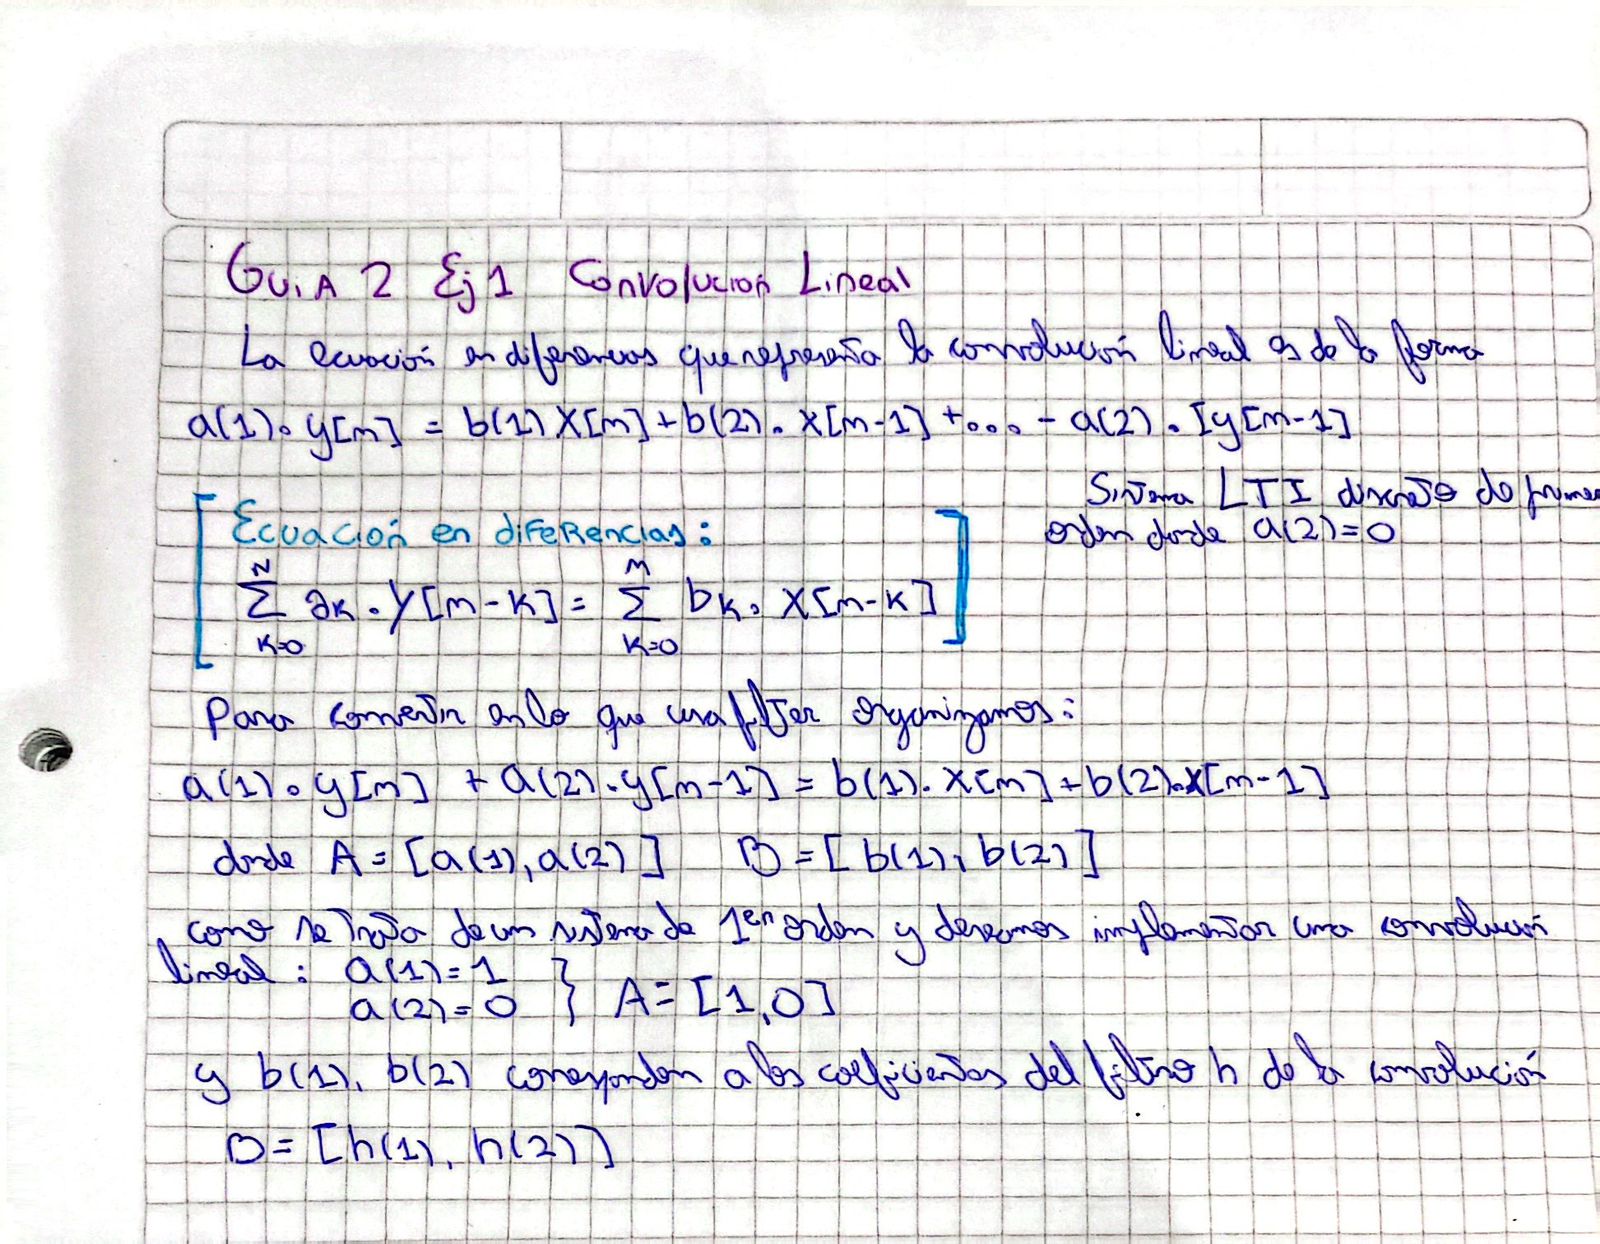 Guia 2 Ej 1 Convolución Lineal
La ecuación en diferencias que representa la convolución lineal es de la forma
a(1)·y[n] = b(1) x[n] + b(2)·x[n-1] + ... - a(2)·[y[n-1]
Sistema LTI discreto de primer
orden donde a(2)=0
Ecuación en diferencias:
N M
∑ ak·y[n-k] = ∑ bk·x[n-k]
k=0 k=0
Para convertir en lo que usa filter organizamos:
a(1)·y[n] + a(2)·y[n-1] = b(1)·x[n] + b(2)·x[n-1]
donde A = [a(1), a(2)] B = [b(1), b(2)]
como se trata de un sistema de 1er orden y deseamos implementar una convolución
lineal: a(1)=1
a(2)=0 } A=[1,0]
y b(1), b(2) corresponden a los coeficientes del filtro h de la convolución
B=[h(1), h(2)]